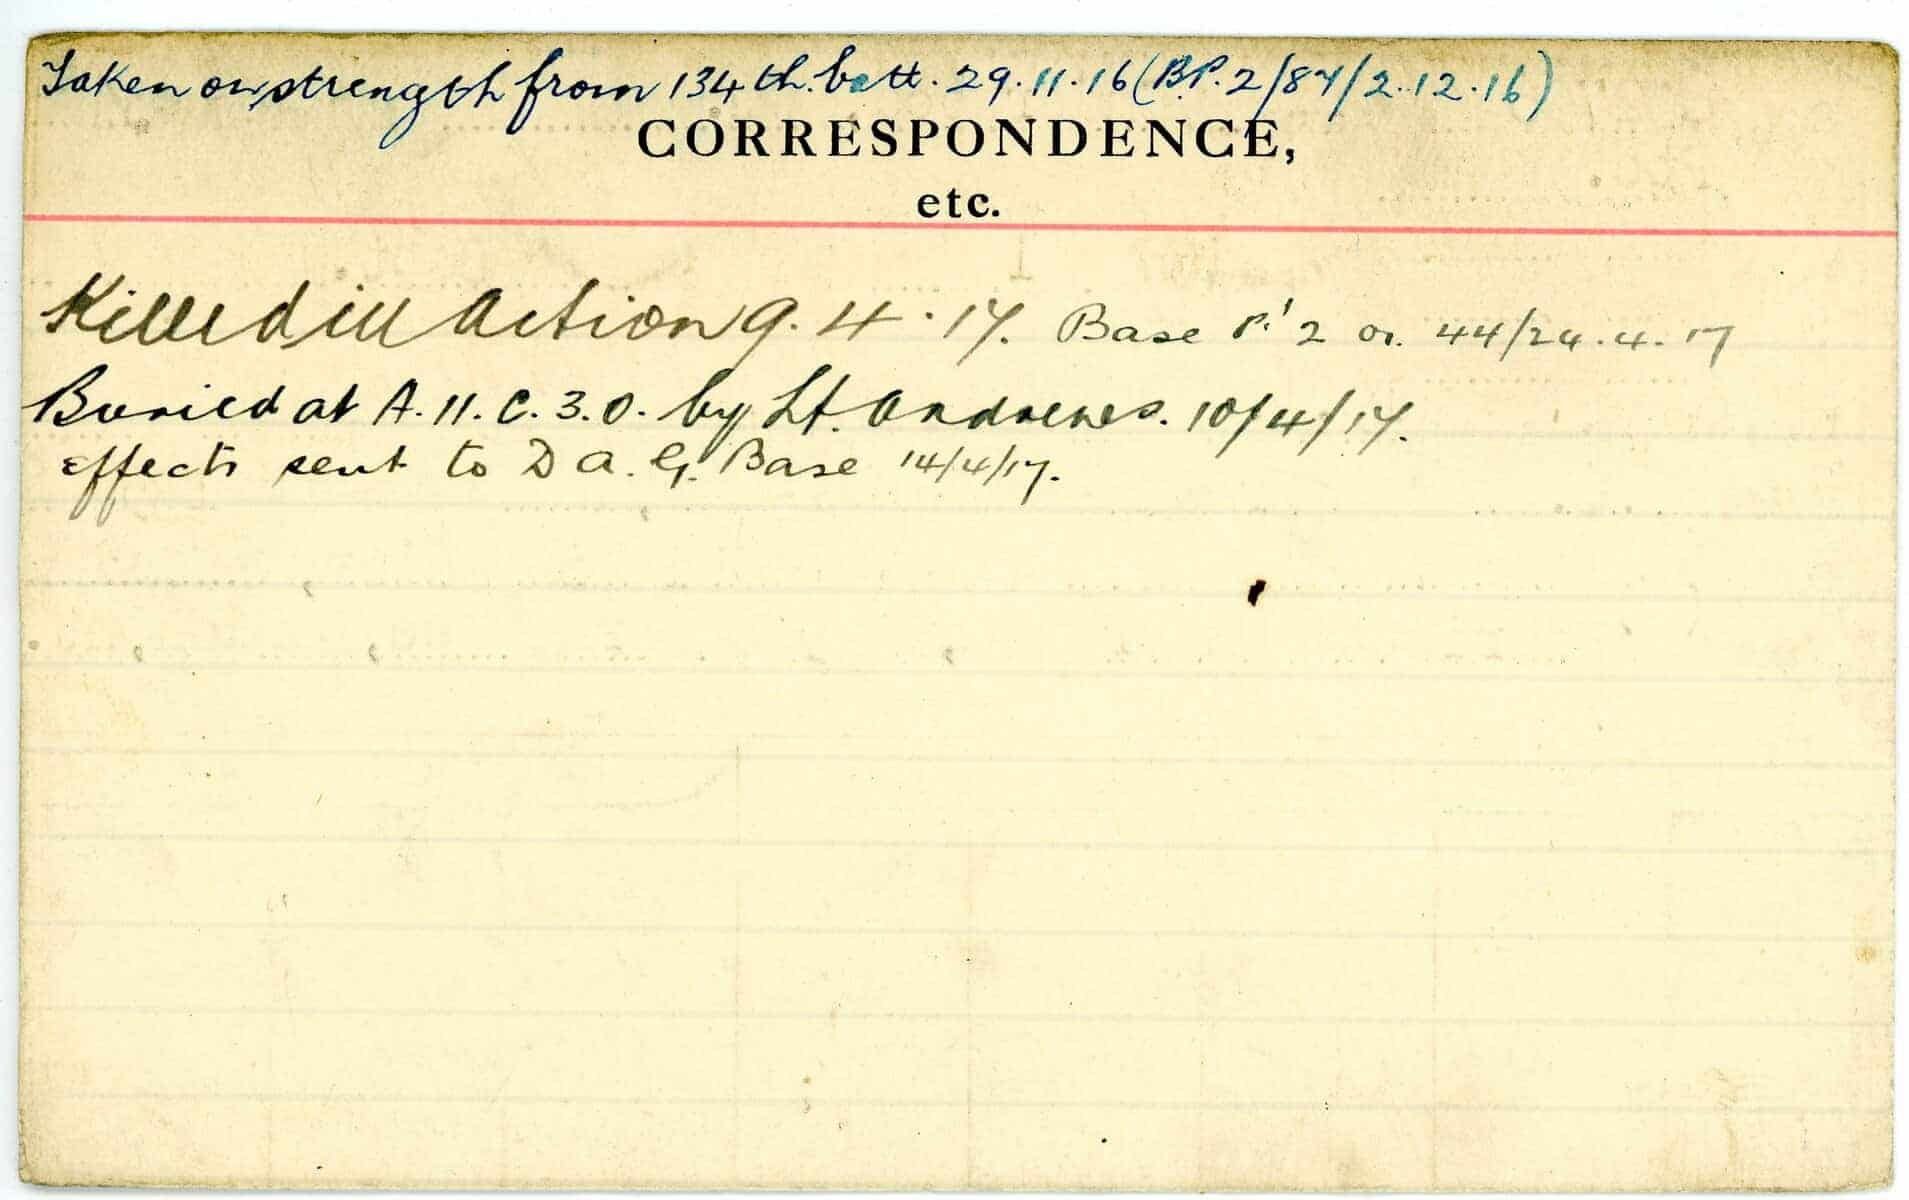 Taken on strength from 134th. batt. 29.11.16 (B.P. 2/87/2.12.16)
CORRESPONDENCE,
etc.
Killed in Action 9.4.17. Base P. 2 or. 44/24.4.17
Buried at A.11.C.3.0. by Lt. Andrews. 10/4/17.
effects sent to D A. G. Base 14/4/17.